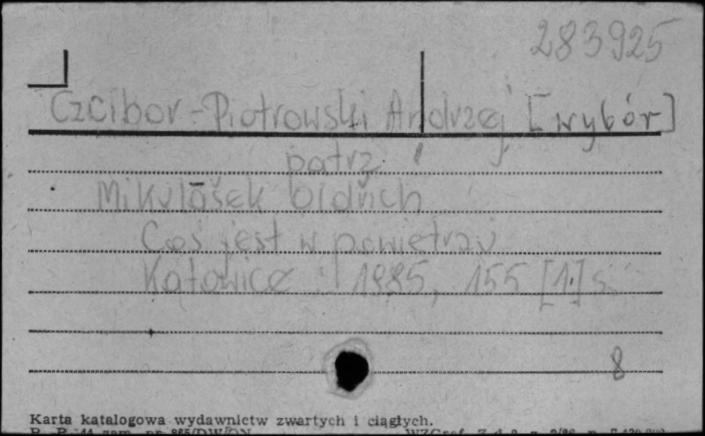 283925
Czcibor-Piotrowski Andrzej [wybór]
patrz
Mikulášek Oldřich
Coś jest w powietrzu
Katowice 1985, 155 [1] s.
8
Karta katalogowa wydawnictw zwartych i ciągłych.